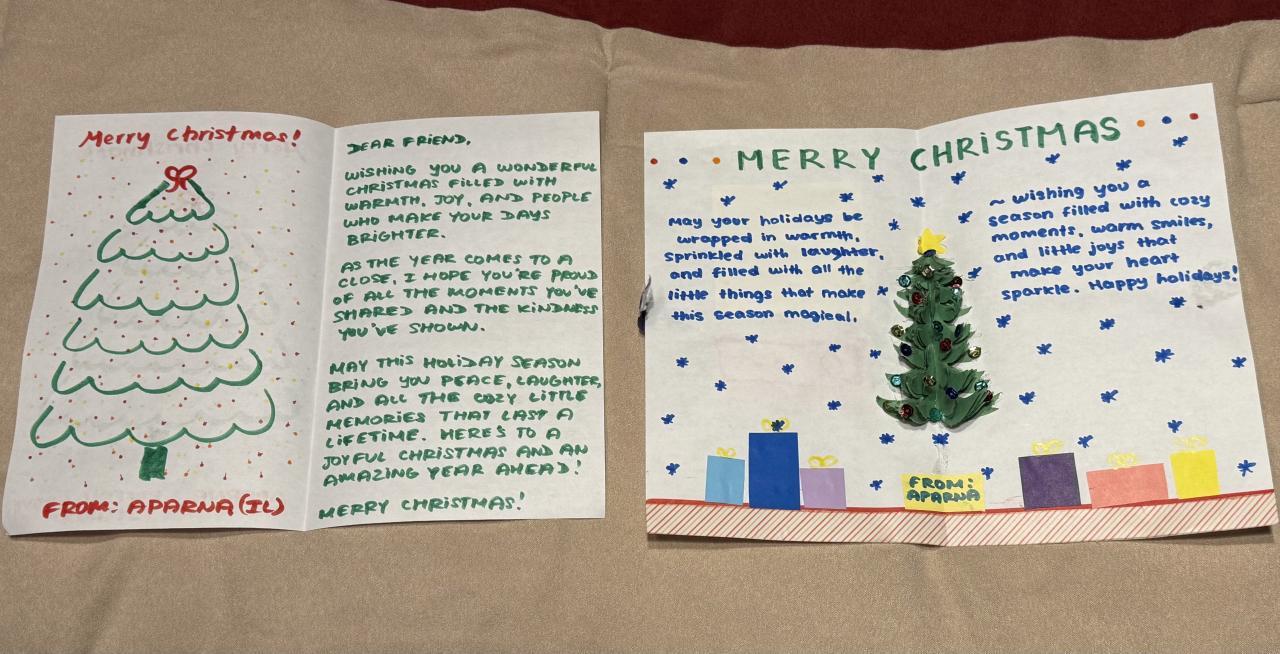 Merry Christmas!
FROM: APARNA (IL)
DEAR FRIEND,
WISHING YOU A WONDERFUL
CHRISTMAS FILLED WITH
WARMTH, JOY, AND PEOPLE
WHO MAKE YOUR DAYS
BRIGHTER.
AS THE YEAR COMES TO A
CLOSE, I HOPE YOU'RE PROUD
OF ALL THE MOMENTS YOU'VE
SHARED AND THE KINDNESS
YOU'VE SHOWN.
MAY THIS HOLIDAY SEASON
BRING YOU PEACE, LAUGHTER,
AND ALL THE COZY LITTLE
MEMORIES THAT LAST A
LIFETIME. HERE'S TO A
JOYFUL CHRISTMAS AND AN
AMAZING YEAR AHEAD!
MERRY CHRISTMAS!
MERRY CHRISTMAS
May your holidays be
wrapped in warmth,
sprinkled with laughter,
and filled with all the
little things that make
this season magical.
~ wishing you a
season filled with cozy
moments, warm smiles,
and little joys that
make your heart
sparkle. Happy holidays!
FROM:
APARNA